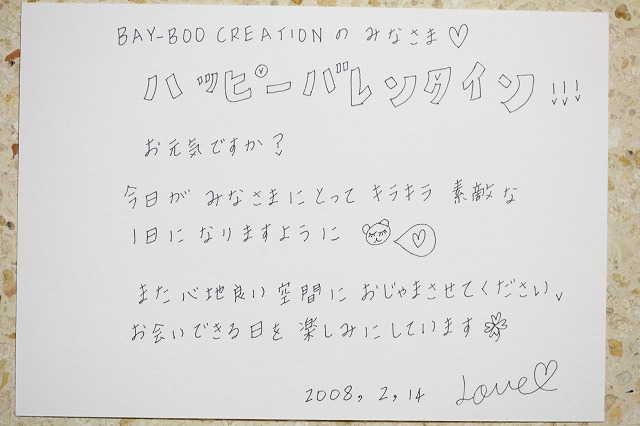 BAY-BOO CREATIONの みなさま♡
ハッピーバレンタイン!!!
お元気ですか?
今日が みなさまにとって キラキラ 素敵な
1日に なりますように
また 心地良い 空間に おじゃまさせてください
お会いできる日を 楽しみにしています
2008, 2, 14 Love♡